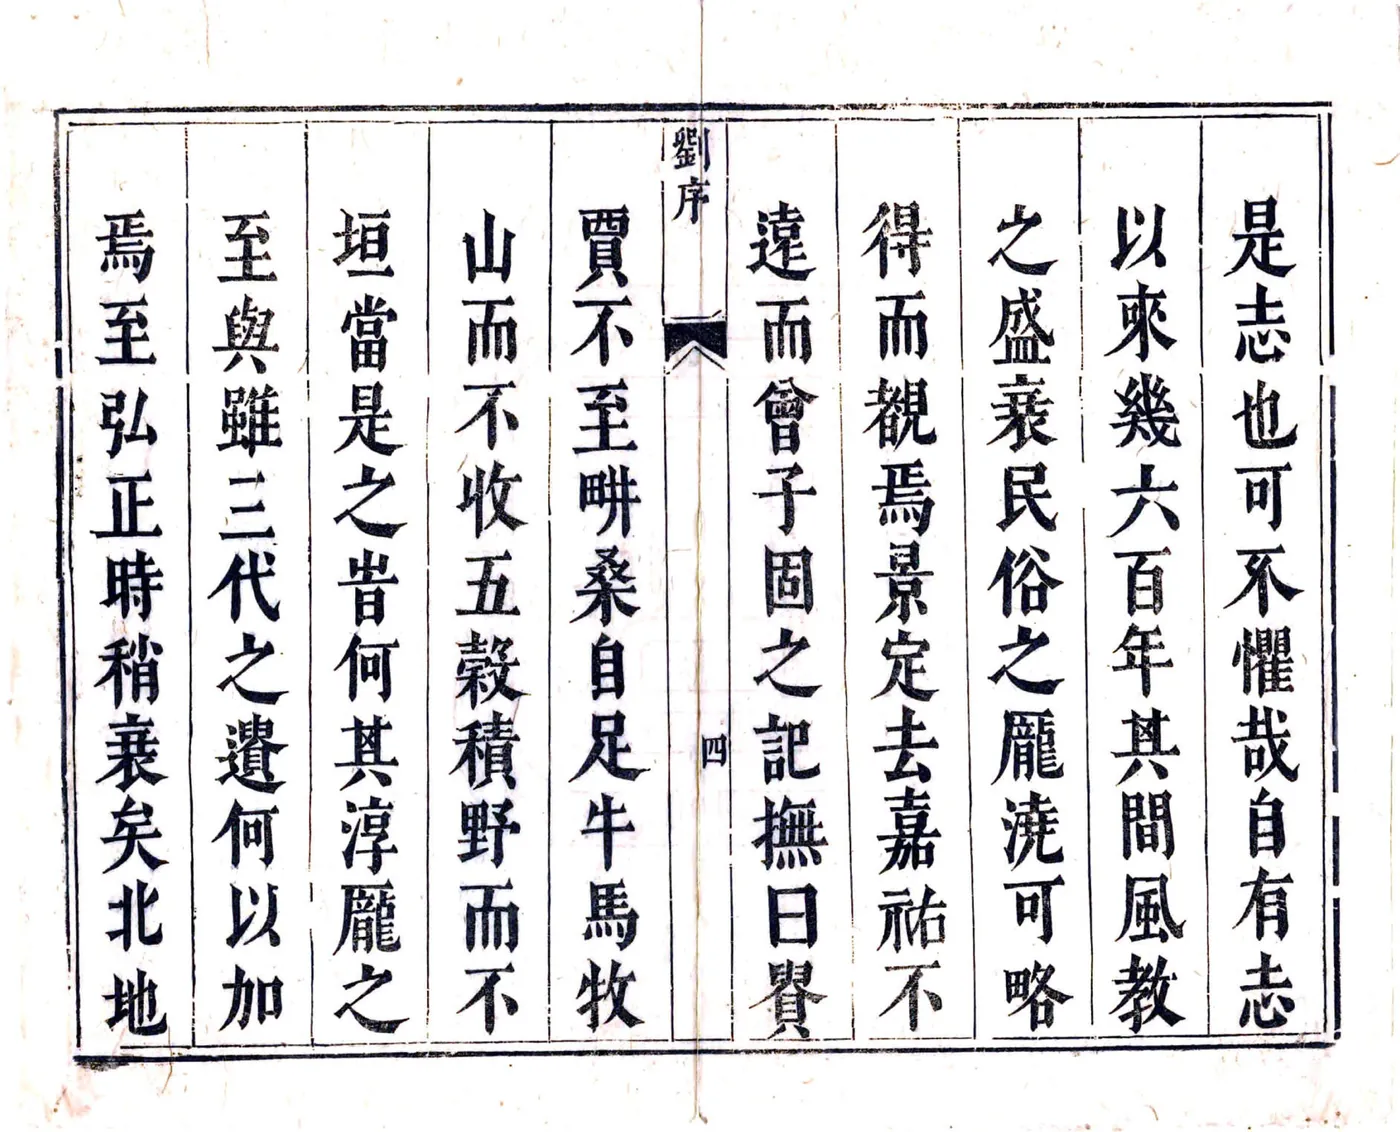 是志也可不懼哉自有志
以來幾六百年其間風教
之盛衰民俗之龐澆可略
得而覩焉景定去嘉祐不
遠而曾子固之記撫曰貴
劉序
四
賈不至畊桑自足牛馬牧
山而不收五穀積野而不
垣當是之旹何其淳龐之
至與雖三代之遺何以加
焉至弘正時稍衰矣北地